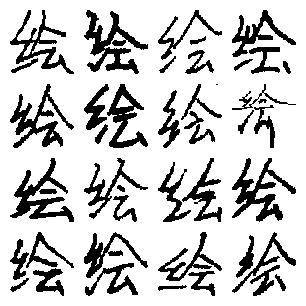 绘绘绘绘
绘绘绘绘
绘绘绘绘
绘绘绘绘